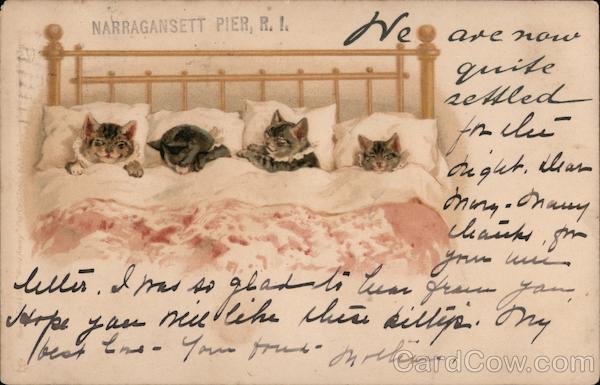 NARRAGANSETT PIER, R. I.
We are now
quite
settled
for the
night, dear
Mary - Many
thanks, for
your nice
letter. I was so glad to hear from you
Hope you will like these kittys. My
best love - Your fond - Mother.
CardCow.com